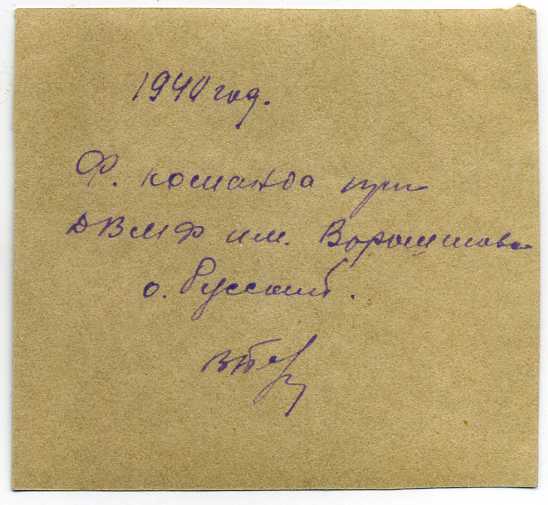 1940 год.
Ф. команда при
ДВМФ им. Ворошилова
о. Русский.